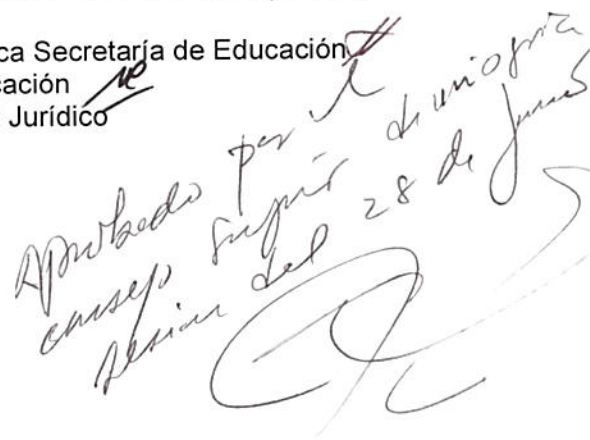 ca Secretaría de Educación
cación
Jurídico
Aprobado por el
consejo superior
sesion del 28 de Junio